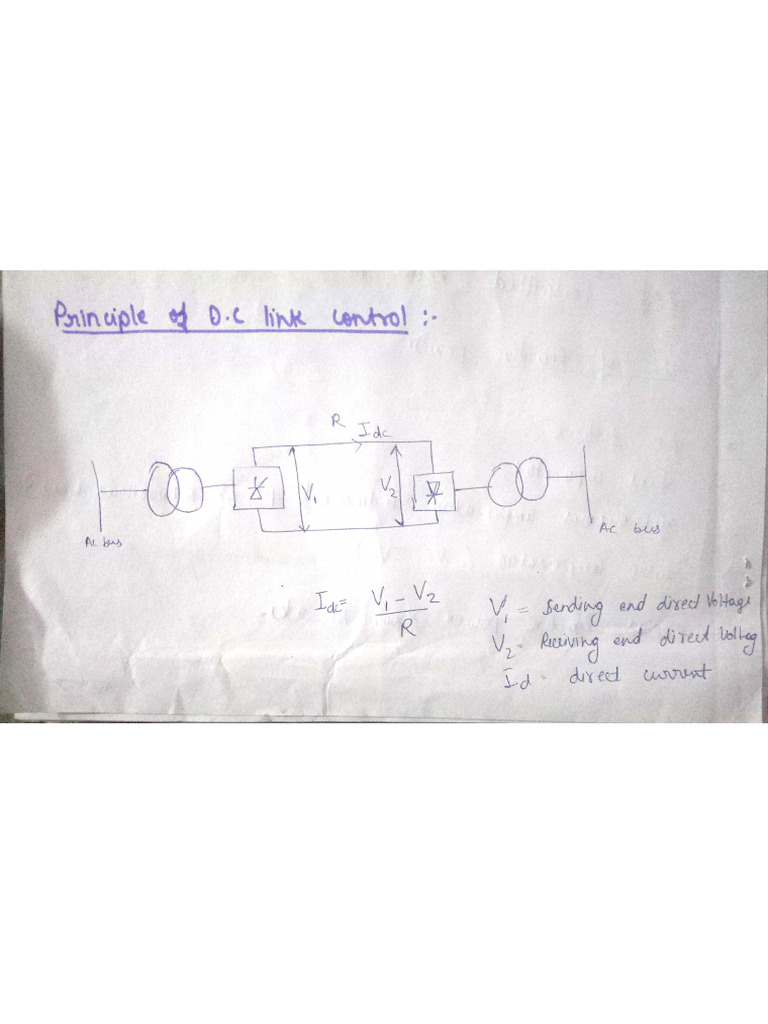 Principle of D.C link control :-
R Idc
V1
V2
Ac bus
Ac bus
Idc = V1 - V2
R
V1 = Sending end direct Voltage
V2 = Receiving end direct Voltag
Id = direct current